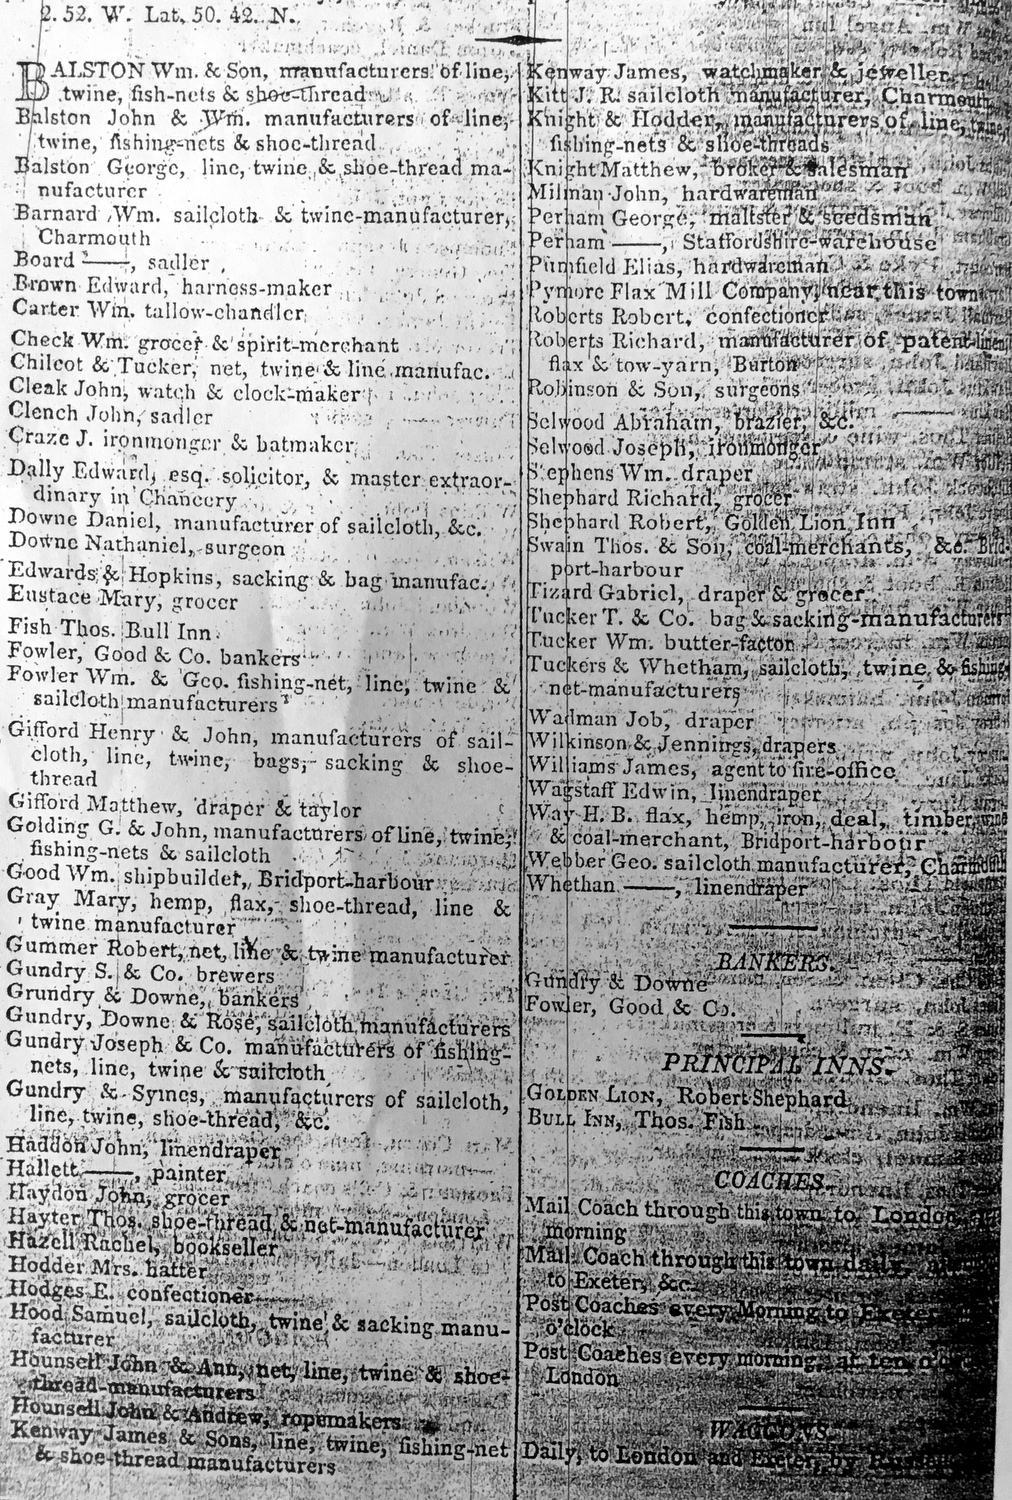 2. 52. W. Lat. 50. 42. N.
BALSTON Wm. & Son, manufacturers of line,
twine, fish-nets & shoe-thread
Balston John & Wm. manufacturers of line,
twine, fishing-nets & shoe-thread
Balston George, line, twine & shoe-thread ma-
nufacturer
Barnard Wm. sailcloth & twine-manufacturer,
Charmouth
Board ——, sadler
Brown Edward, harness-maker
Carter Wm. tallow-chandler
Check Wm. grocer & spirit-merchant
Chilcot & Tucker, net, twine & line manufac.
Cleak John, watch & clock-maker
Clench John, sadler
Craze J. ironmonger & batmaker
Dally Edward, esq. solicitor, & master extraor-
dinary in Chancery
Downe Daniel, manufacturer of sailcloth, &c.
Downe Nathaniel, surgeon
Edwards & Hopkins, sacking & bag manufac.
Eustace Mary, grocer
Fish Thos. Bull Inn
Fowler, Good & Co. bankers
Fowler Wm. & Geo. fishing-net, line, twine &
sailcloth manufacturers
Gifford Henry & John, manufacturers of sail-
cloth, line, twine, bags, sacking & shoe-
thread
Gifford Matthew, draper & taylor
Golding G. & John, manufacturers of line, twine,
fishing-nets & sailcloth
Good Wm. shipbuilder, Bridport-harbour
Gray Mary, hemp, flax, shoe-thread, line &
twine manufacturer
Gummer Robert, net, line & twine manufacturer
Gundry S. & Co. brewers
Grundry & Downe, bankers
Gundry, Downe & Rose, sailcloth manufacturers
Gundry Joseph & Co. manufacturers of fishing-
nets, line, twine & sailcloth
Gundry & Symes, manufacturers of sailcloth,
line, twine, shoe-thread, &c.
Haddon John, linendraper
Hallett ——, painter
Haydon John, grocer
Hayter Thos. shoe-thread & net-manufacturer
Hazell Rachel, bookseller
Hodder Mrs. hatter
Hodges E. confectioner
Hood Samuel, sailcloth, twine & sacking manu-
facturer
Hounsell John & Ann, net, line, twine & shoe-
thread-manufacturers
Hounsell John & Andrew, ropemakers
Kenway James & Sons, line, twine, fishing-net
& shoe-thread manufacturers
Kenway James, watchmaker & jeweller
Kitt J. R. sailcloth manufacturer, Charmouth
Knight & Hodder, manufacturers of line, twine,
fishing-nets & shoe-threads
Knight Matthew, broker & salesman
Milman John, hardwareman
Perham George, malister & seedsman
Perham ——, Staffordshire-warehouse
Pumfield Elias, hardwareman
Pymore Flax Mill Company, near this town
Roberts Robert, confectioner
Roberts Richard, manufacturer of patent linen
flax & tow-yarn, Burton
Robinson & Son, surgeons
Selwood Abraham, brazier, &c.
Selwood Joseph, ironmonger
Stephens Wm. draper
Shephard Richard, grocer
Shephard Robert, Golden Lion Inn
Swain Thos. & Son, coal-merchants, &c. Brid-
port-harbour
Tizard Gabriel, draper & grocer
Tucker T. & Co. bag & sacking-manufacturers
Tucker Wm. butter-factor
Tuckers & Whetham, sailcloth, twine, & fishing-
net-manufacturers
Wadman Job, draper
Wilkinson & Jennings, drapers
Williams James, agent to fire-office
Wagstaff Edwin, linendraper
Way H. B. flax, hemp, iron, deal, timber, wine
& coal-merchant, Bridport-harbour
Webber Geo. sailcloth manufacturer, Charmouth
Whethan ——, linendraper
BANKERS.
Gundry & Downe
Fowler, Good & Co.
PRINCIPAL INNS.
GOLDEN LION, Robert Shephard
BULL INN, Thos. Fish
COACHES.
Mail Coach through this town to London
morning
Mail Coach through this town daily,
to Exeter, &c.
Post Coaches every Morning to Exeter
o'clock
Post Coaches every morning, at ten o'clock
London
WAGGONS.
Daily, to London and Exeter, by